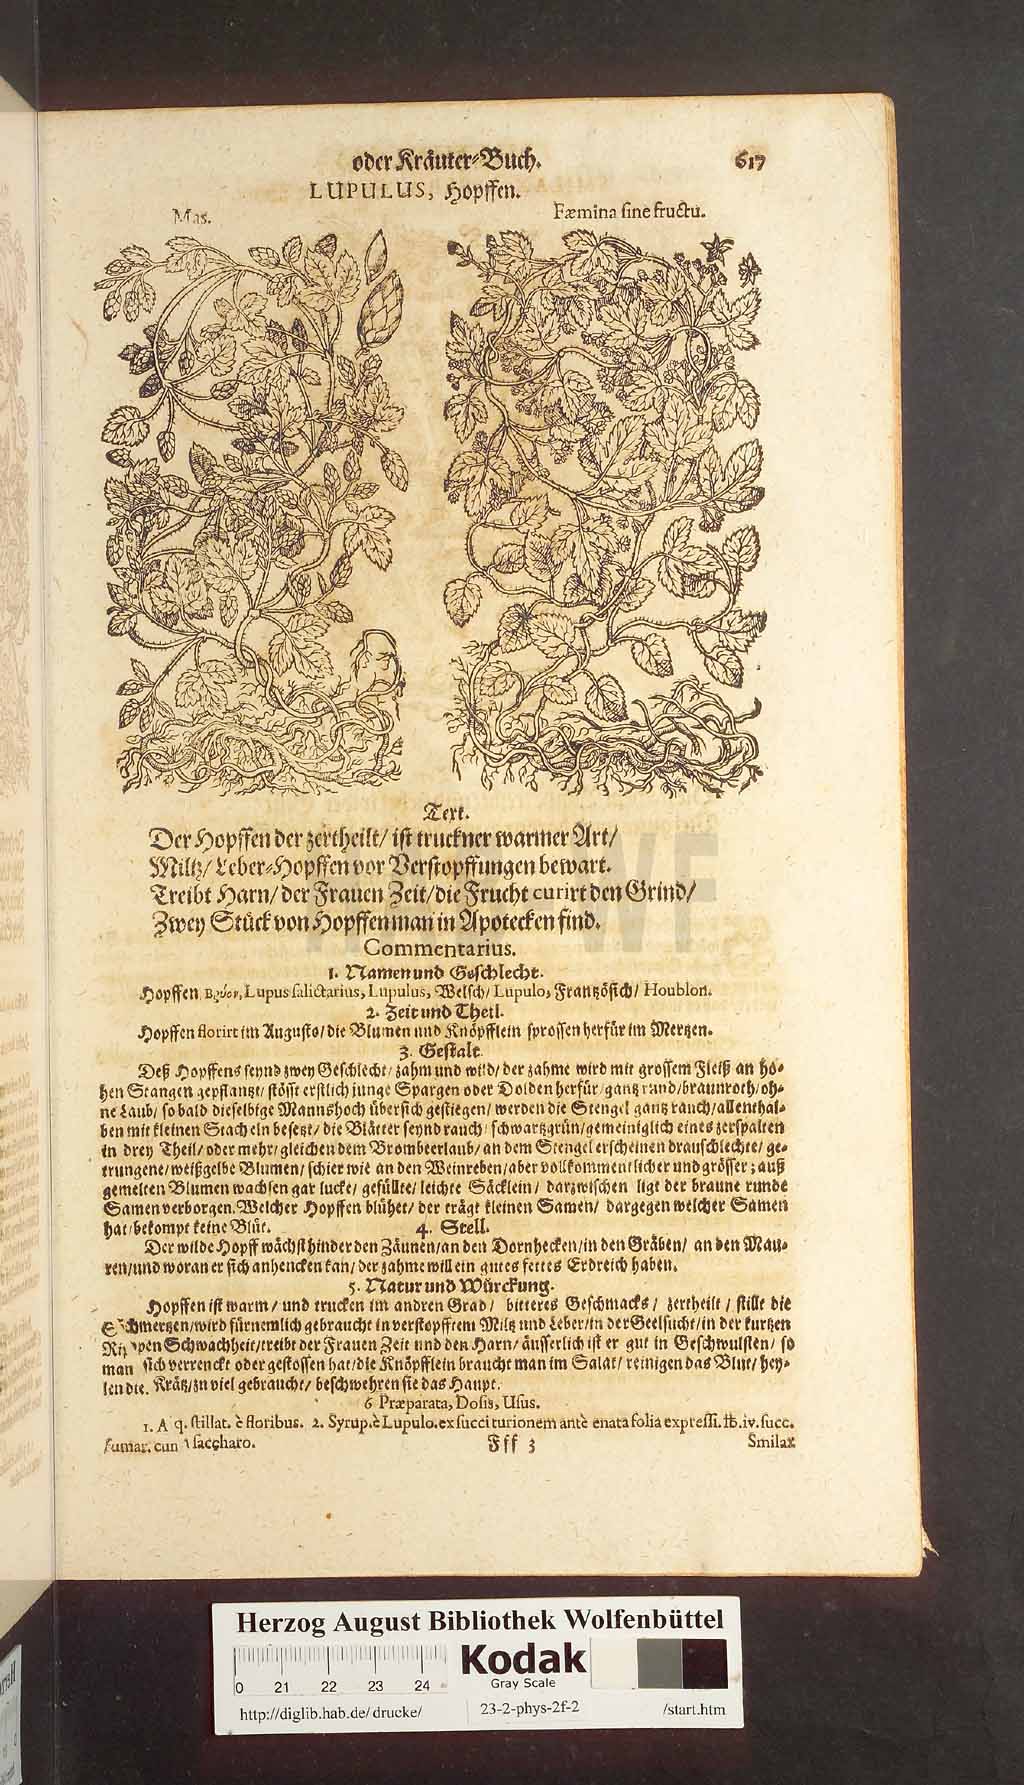 oder Kräuter-Buch. 617
LUPULUS, Hopffen.
Mas. Fæmina sine fructu.
Text.
Der Hopffen der zertheilt/ ist truckner warmer Art/
Miltz/ Leber-Hopffen vor Verstopffungen bewart.
Treibt Harn/ der Frauen Zeit/ die Frucht curirt den Grind/
Zwey Stück von Hopffen man in Apotecken find.
Commentarius.
1. Namen und Geschlecht.
Hopffen, Βρύον, Lupus salictarius, Lupulus, Welsch/ Lupulo, Frantzösisch/ Houblon.
2. Zeit und Theil.
Hopffen florirt im Augusto/ die Blumen und Knöpfflein sprossen herfür im Mertzen.
3. Gestalt.
Deß Hopffens seynd zwey Geschlecht/ zahm und wild/ der zahme wird mit grossem Fleiß an ho-
hen Stangen gepflantzt/ stösst erstlich junge Spargen oder Dolden herfür/ gantz rund/ braunroth/ oh-
ne Laub/ so bald dieselbige Mannshoch übersich gestiegen/ werden die Stengel gantz rauch/ allenthal-
ben mit kleinen Stacheln besetzt/ die Blätter seynd rauch/ schwartzgrün/ gemeiniglich eines zerspalten
in drey Theil/ oder mehr/ gleichen dem Brombeerlaub/ an dem Stengel erscheinen drauschlechte/ ge-
trungene/ weißgelbe Blumen/ schier wie an den Weinreben/ aber vollkommentlicher und grösser; auß
gemelten Blumen wachsen gar lucke/ gefüllte/ leichte Säcklein/ darzwischen ligt der braune runde
Samen verborgen. Welcher Hopffen blühet/ der trägt kleinen Samen/ dargegen welcher Samen
hat/ bekompt keine Blüt. 4. Stell.
Der wilde Hopff wächst hinder den Zäunen/ an den Dornhecken/ in den Gräben/ an den Mau-
ren/ und woran er sich anhencken kan/ der zahme will ein gutes fettes Erdreich haben.
5. Natur und Würckung.
Hopffen ist warm/ und trucken im andren Grad/ bitteres Geschmacks/ zertheilt/ stillt die
Schmertzen/ wird fürnemlich gebraucht in verstopfftem Miltz und Leber/ in der Geelsucht/ in der kurtzen
Rippen Schwachheit/ treibt der Frauen Zeit und den Harn/ äusserlich ist er gut in Geschwulsten/ so
man sich verrenckt oder gestossen hat/ die Knöpfflein braucht man im Salat/ reinigen das Blut/ hey-
len die Krätz/ zu viel gebraucht/ beschwehren sie das Haupt.
6 Præparata, Dosis, Usus.
1. Aq. stillat. è floribus. 2. Syrup. è Lupulo. ex succi turionem antè enata folia expressi. ℔. iv. succ.
fumar. cum saccharo. Fff 3 Smilax
HAB WF
Herzog August Bibliothek Wolfenbüttel
Kodak
Gray Scale
0 21 22 23 24
http://diglib.hab.de/drucke/ 23-2-phys-2f-2 /start.htm